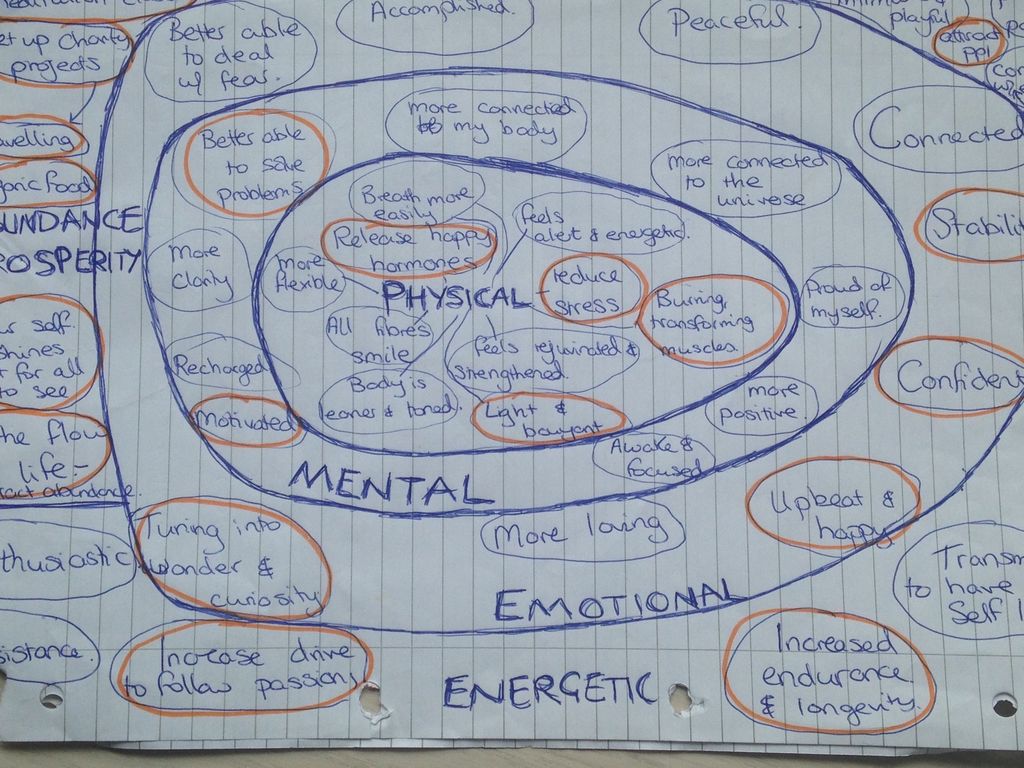 Accomplished.
Peaceful.
playful
attract
ppl
et up charity
projects
Better able
to deal
w/ fear.
more connected
to my body
Better able
to solve
problems
more connected
to the
universe
Connected
Stabilit
Breath more
easily
Release happy
hormones
feels
alert & energetic.
reduce
stress
Burning,
transforming
muscles.
more
flexible
PHYSICAL
All fibres
smile
feels rejuvinated &
strengthened.
Body is
leaner & toned.
Light &
bouyant
More
clarity
Recharged
Motivated
Proud of
myself.
more
positive.
Awake &
focused
MENTAL
Confident
Upbeat &
happy
More loving
Tuning into
wonder &
curiosity
EMOTIONAL
velling
ganic food
UNDANCE
ROSPERITY
r self
shines
for all
to see
the flow
life -
ract abundance.
thusiastic
sistance.
Increase drive
to follow passion
ENERGETIC
Increased
endurance
& longevity.
Transm
to have
Self l